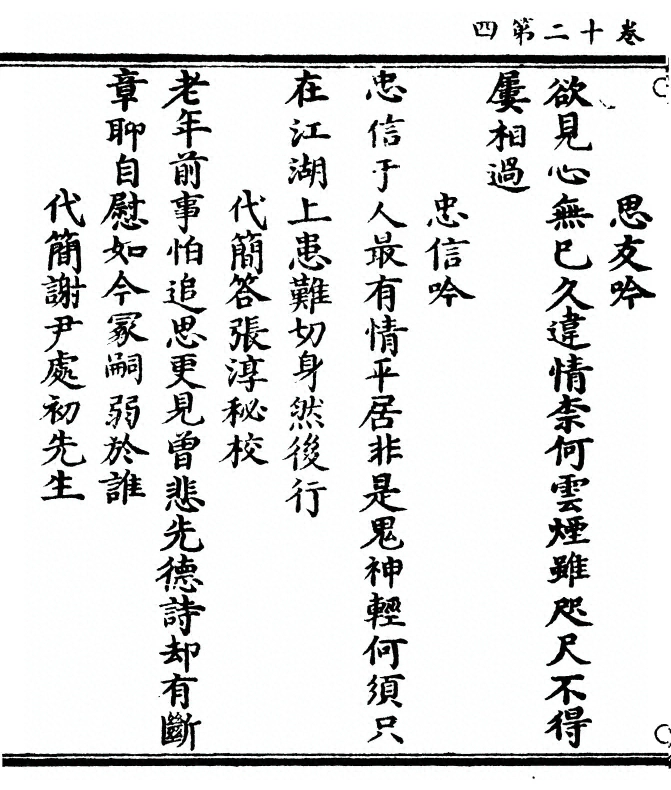 卷十二第四
思友吟
欲見心無已久違情柰何雲煙雖咫尺不得
屢相過
忠信吟
忠信于人最有情平居非是鬼神輕何須只
在江湖上患難切身然後行
代簡答張淳秘校
老年前事怕追思更見曾悲先德詩却有斷
章聊自慰如今冢嗣弱於誰
代簡謝尹處初先生